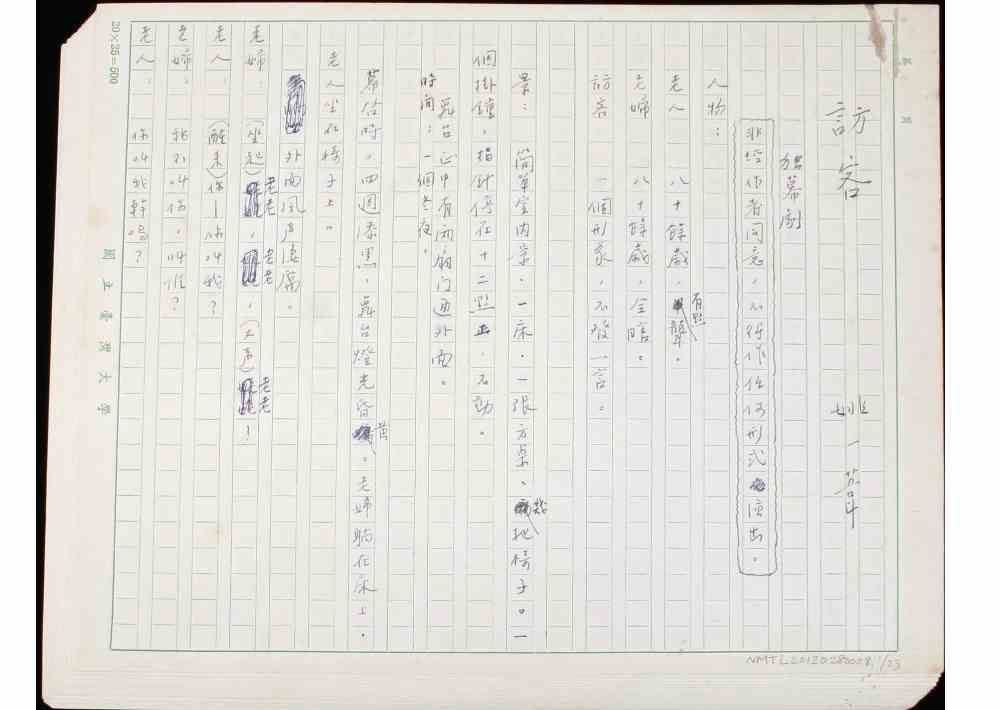 訪客
姚一葦
獨幕劇
非經作者同意,不得作任何形式演出。
人物:
老人 八十餘歲,有點聾。
老婦 八十餘歲,全瞎。
訪客 一個形象,不發一言。
景: 簡單室內景,一床,一張方桌、幾把椅子。一
個掛鐘,指針停在十二點正,不動。
舞台正中有兩扇門通外面。
時間:一個冬夜。
幕啟時,四週漆黑,舞台燈光昏黃。老婦躺在床上,
老人坐在椅子上。
外面風声淒厲。
老婦:(坐起)老老,老老,(大声)老老!
老人:(醒來)你—你叫我?
老婦: 我不叫你,叫誰?
老人: 你叫我幹嗎?
國立臺灣大學
20×25=500
NMTL20120280028, 1/23